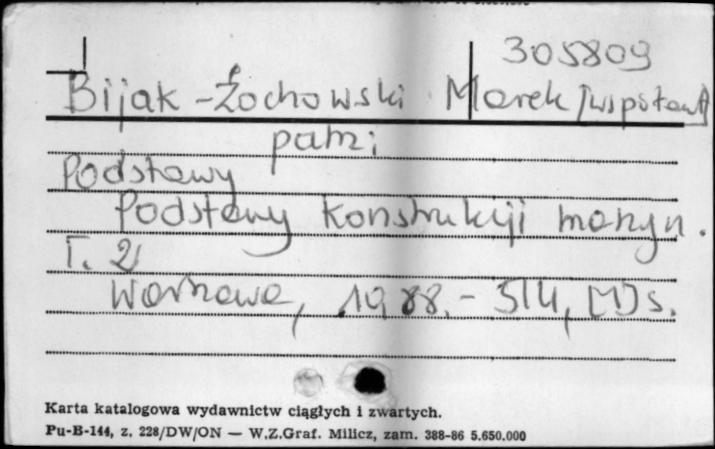 305809
Bijak-Żochowski Marek [współaut]
patrz:
Podstawy
Podstawy konstrukcji maszyn.
T. 2
Warszawa, 1988. - 514, [1] s.
Karta katalogowa wydawnictw ciągłych i zwartych.
Pu-B-144, z. 228/DW/ON — W.Z.Graf. Milicz, zam. 388-86 5.650.000